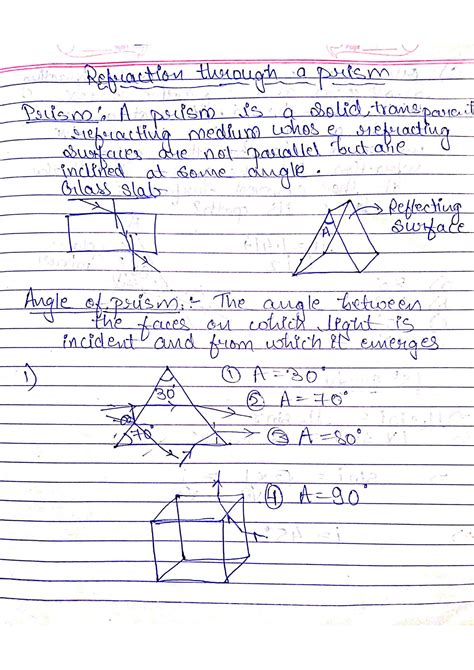 Refraction through a prism
Prism:- A prism is a solid, transparent
refracting medium whose refracting
surfaces are not parallel but are
inclined at some angle.
Glass slab
Reflecting
surface
A
Angle of prism:- The angle between
the faces on which light is
incident and from which it emerges
1)
30°
70°
① A=30°
② A=70°
③ A=80°
④ A=90°